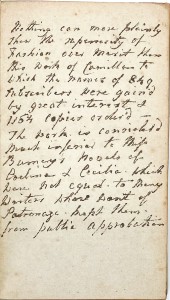 Nothing can more plainly
shew the superiority of
Fashion over Merit than
this Work of Camilla to
which the names of 849
Subscribers were gained
by great interest &
1154 copies order'd
The Work is consider'd
much inferior to Miss
Burney's Novels of
Evelina & Cecilia which
were not equal to Many
Writers whose want of
Patronage kept them
from public approbation